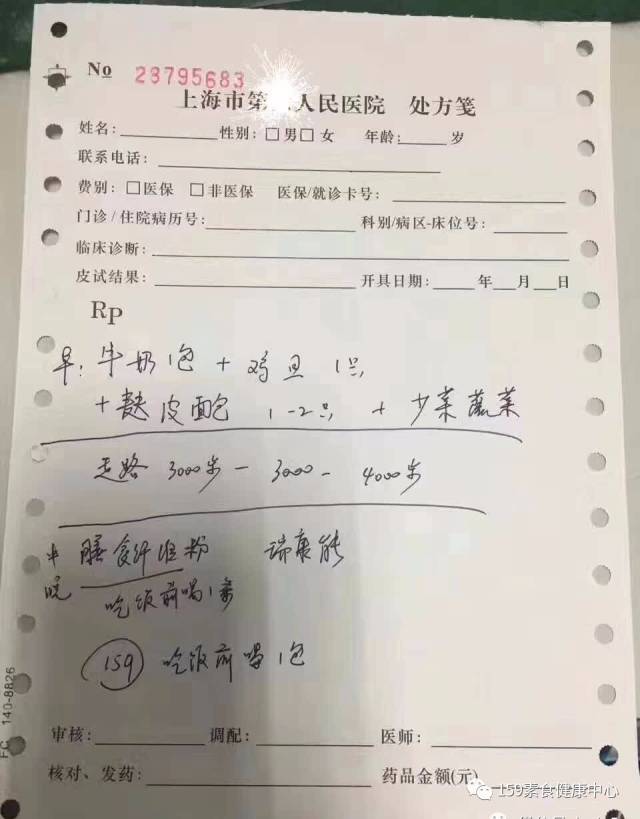 No 23795683
上海市第 人民医院 处方笺
姓名: 性别: □男□女 年龄: 岁
联系电话:
费别: □医保 □非医保 医保/就诊卡号:
门诊/住院病历号: 科别/病区-床位号:
临床诊断:
皮试结果: 开具日期: 年 月 日
Rp
早: 牛奶1包 + 鸡旦 1只
+ 麸皮面包 1-2只 + 少菜蔬菜
走路 3000步 - 3000 - 4000步
中 膳食纤维粉 瑞康能
晚 吃饭前喝1条
159 吃饭前喝1包
审核: 调配: 医师:
核对、发药: 药品金额(元)
FC 140-8826
159素食健康中心